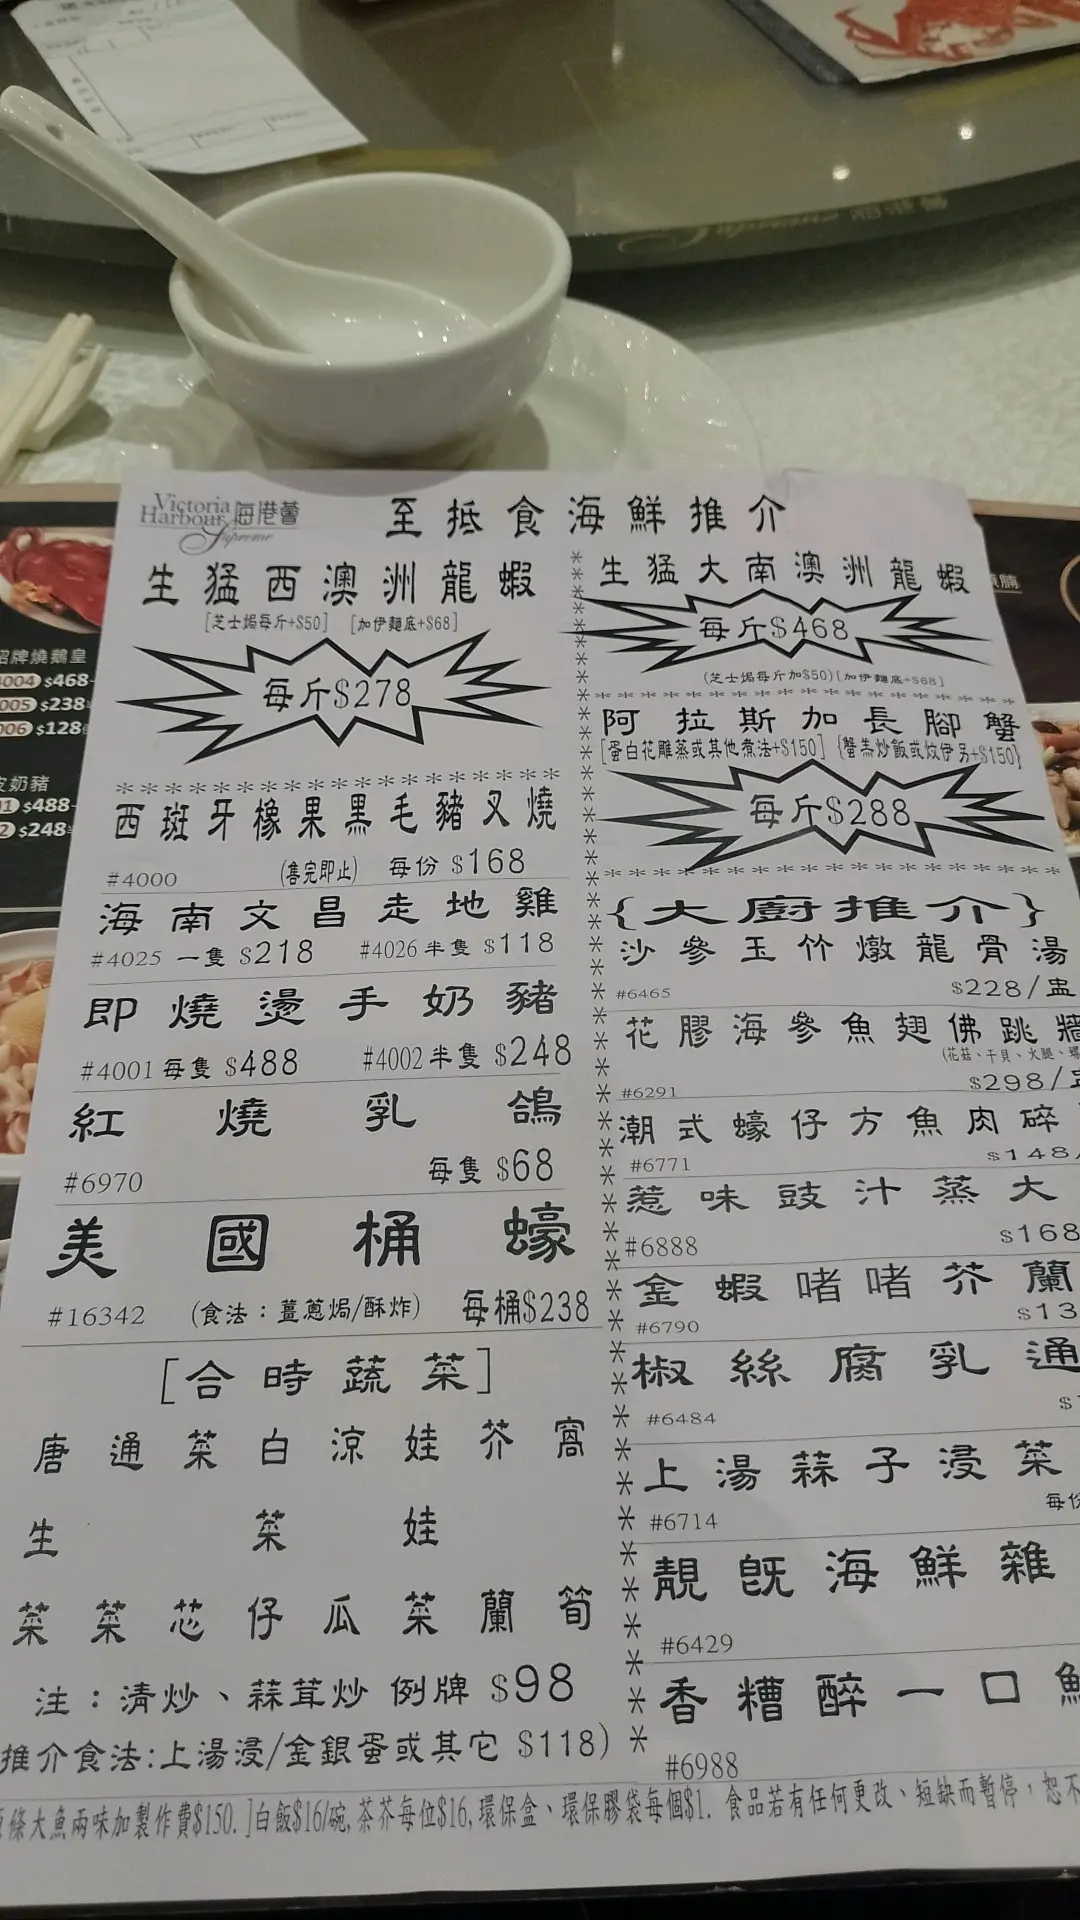 Victoria
Harbour 海港薈
Supreme
至抵食海鮮推介
生猛西澳洲龍蝦
[芝士焗每斤+$50] [加伊麵底+$68]
每斤$278
西班牙橡果黑毛豬叉燒
#4000 (售完即止) 每份 $168
海南文昌走地雞
#4025 一隻 $218 #4026 半隻 $118
即燒燙手奶豬
#4001 每隻 $488 #4002 半隻 $248
紅燒乳鴿
#6970 每隻 $68
美國桶蠔
#16342 (食法：薑蔥焗/酥炸) 每桶$238
[合時蔬菜]
唐通菜白涼娃芥窩
生 菜 娃
菜菜芯仔瓜菜蘭筍
注：清炒、蒜茸炒 例牌 $98
推介食法:上湯浸/金銀蛋或其它 $118)
生猛大南澳洲龍蝦
每斤$468
(芝士焗每斤加$50)[加伊麵底+$68]
阿拉斯加長腳蟹
[蛋白花雕蒸或其他煮法+$150] {蟹羔炒飯或炆伊另+$150}
每斤$288
{大廚推介}
沙參玉竹燉龍骨湯
#6465 $228/盅
花膠海參魚翅佛跳牆
(花菇、干貝、火腿、
#6291 $298/
潮式蠔仔方魚肉碎
#6771 $148/
惹味豉汁蒸大
#6888 $168
金蝦啫啫芥蘭
#6790 $13
椒絲腐乳通
#6484
上湯蒜子浸菜
#6714 每份
靚旣海鮮雜
#6429
香糟醉一口鮑
#6988
條大魚兩味加製作費$150.]白飯$16/碗,茶芥每位$16,環保盒、環保膠袋每個$1. 食品若有任何更改、短缺而暫停，恕不
招牌燒鵝皇
4004 $468
005 $238
006 $128
皮奶豬
01 $488
2 $248